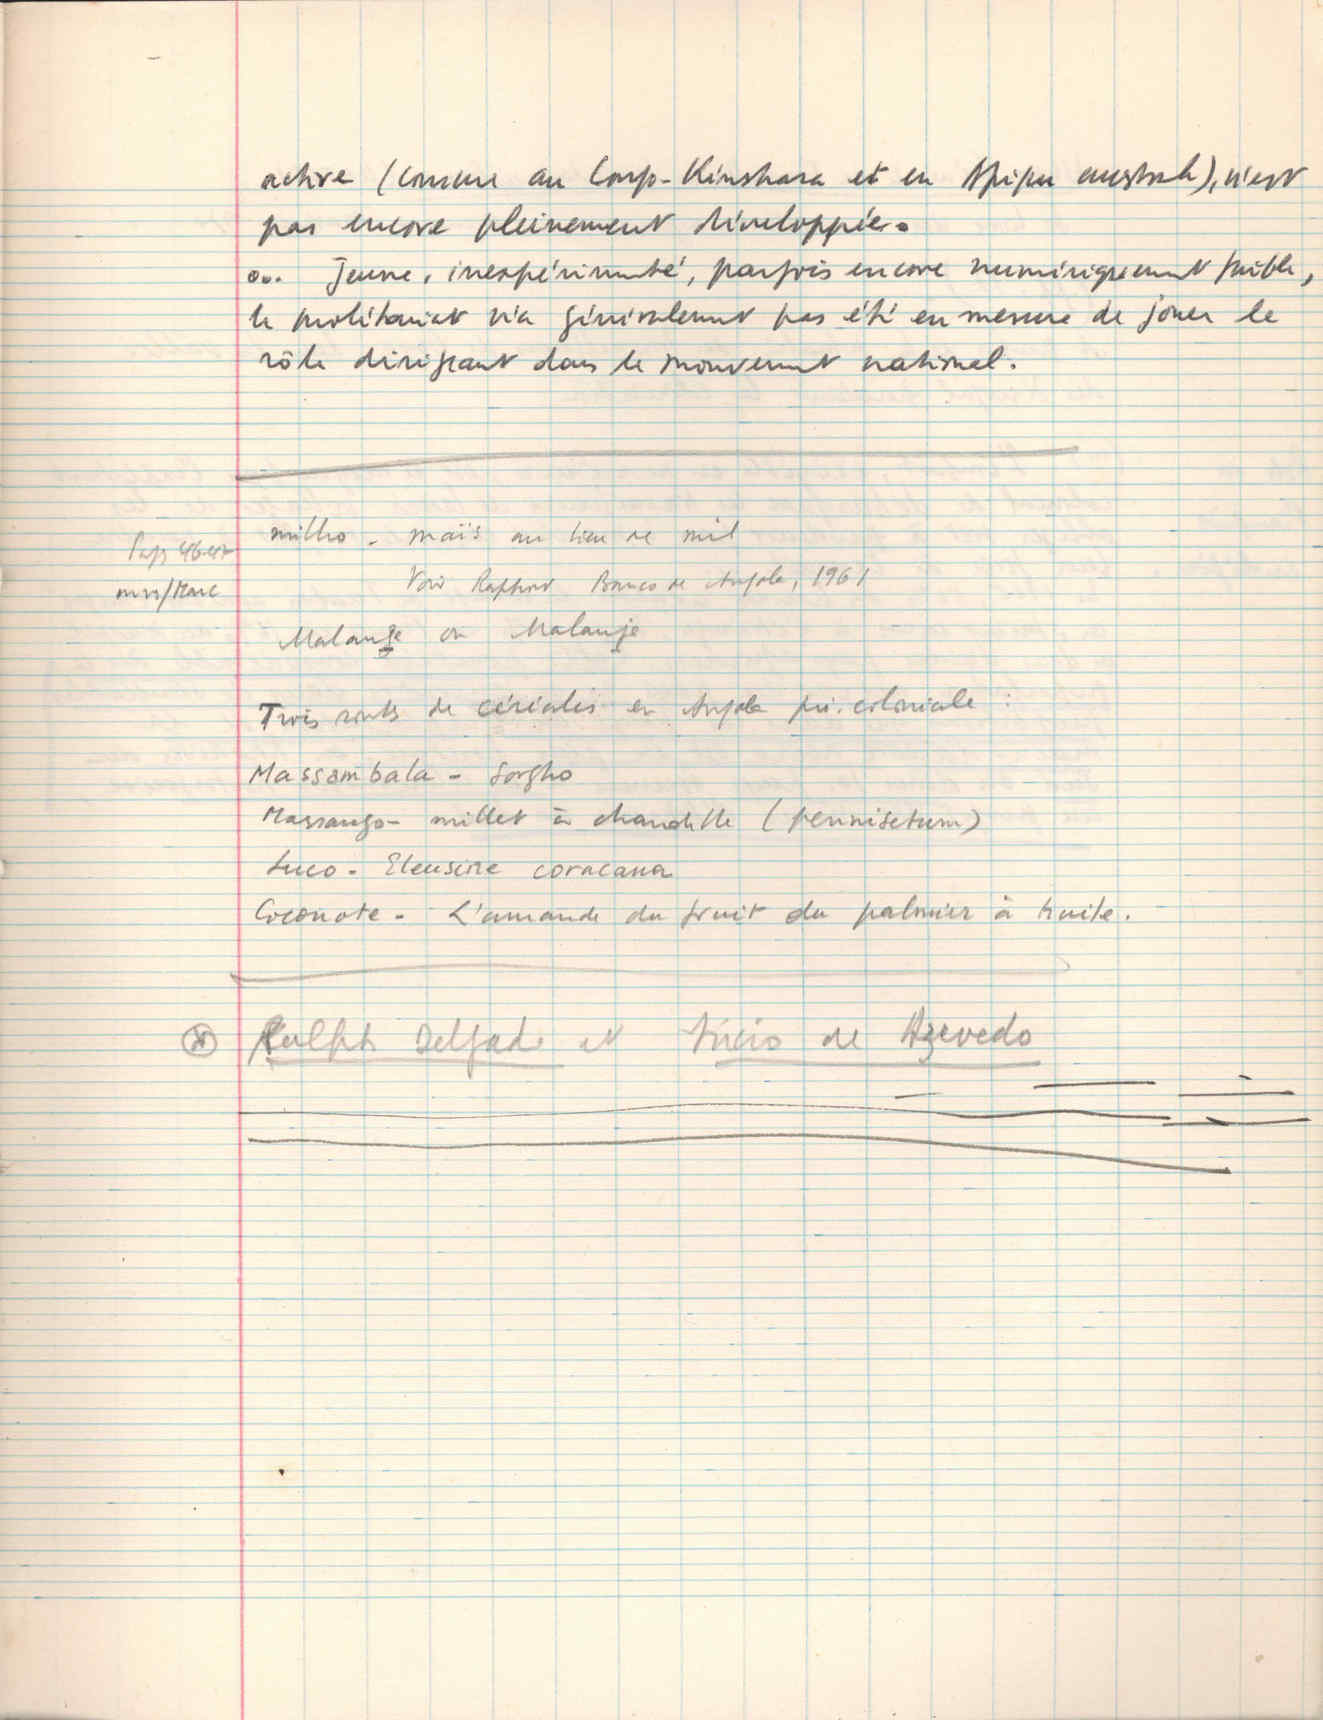 active (comme au Congo-Kinshasa et en Afrique australe), n'est
pas encore pleinement développée.
... Jeune, inexpérimenté, parfois encore numériquement faible,
le prolétariat n'a généralement pas été en mesure de jouer le
rôle dirigeant dans le mouvement national.
milho - maïs au lieu de mil
Voir Rapport Banco de Angola, 1961
Malange ou Malanje
Trois sortes de céréales en Angola pré-coloniale :
Massambala - Sorgho
Massango - millet à chandelle (pennisetum)
Luco - Eleusine coracana
Coconote - L'amande du fruit du palmier à huile.
Ralph Delgado et Lúcio de Azevedo